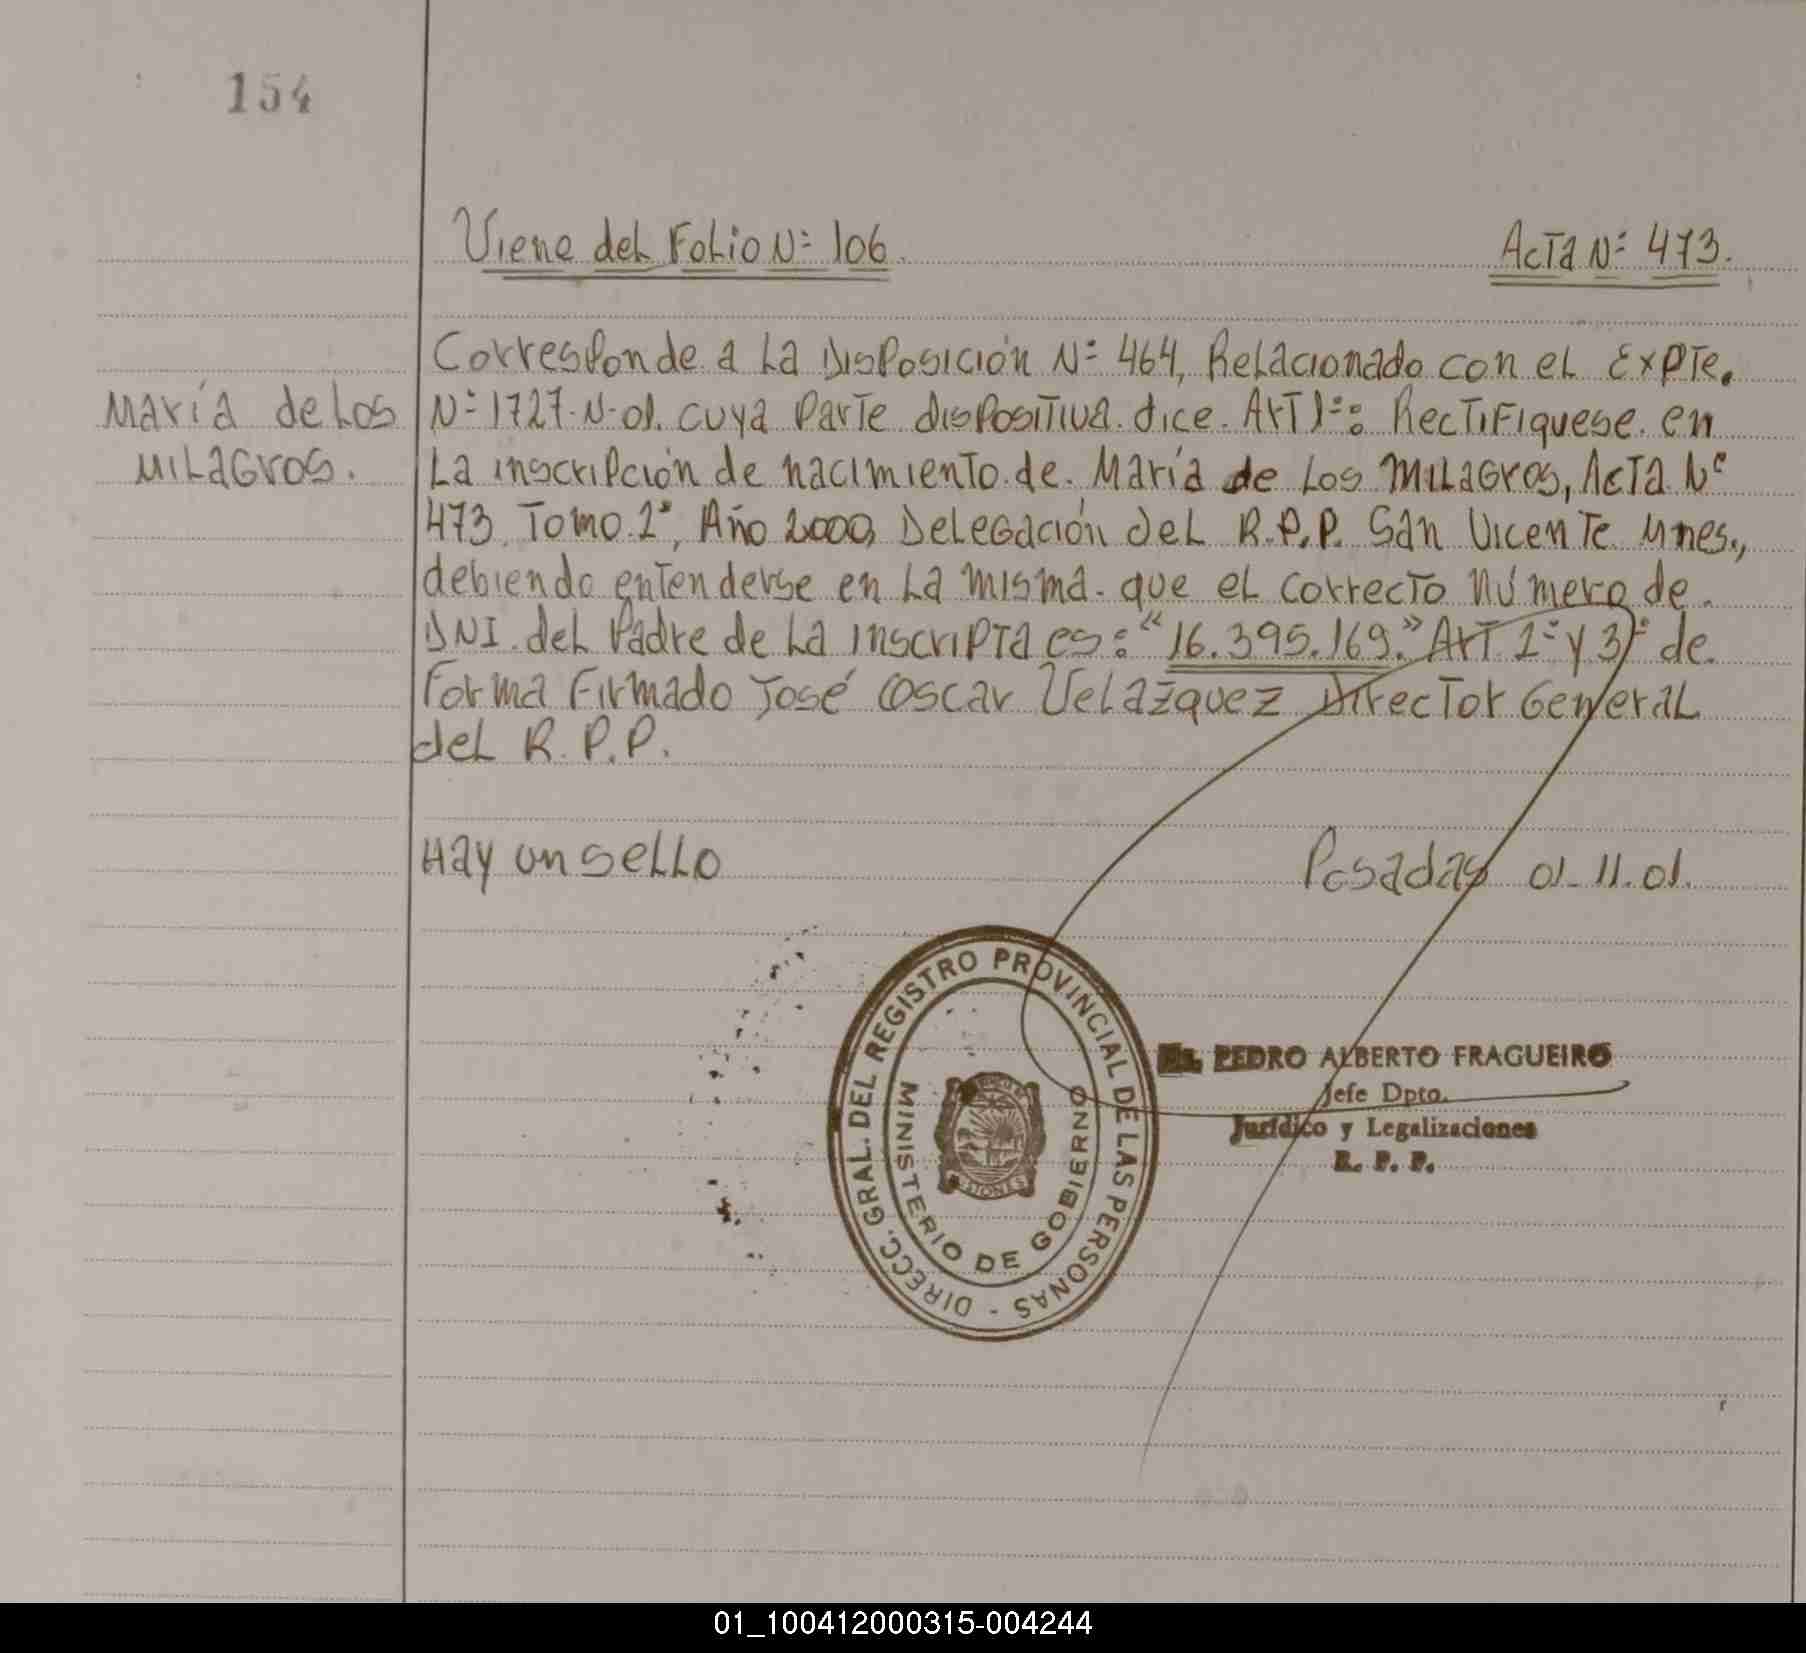 154
Viene del Folio Nº 106. Acta Nº 473.
Corresponde a la Disposición Nº 464, Relacionado con el Expte.
María de los
Nº 1727-N-01. cuya Parte dispositiva dice. Art 1º: Rectifiquese en
Milagros.
la inscripción de nacimiento de María de los Milagros, Acta Nº
473 Tomo 2º, Año 2000, Delegación del R.P.P. San Vicente Mnes.,
debiendo entenderse en la misma que el correcto número de
DNI del Padre de la inscripta es: "16.395.169." Art. 2º y 3º de
Forma Firmado José Oscar Velazquez Director General
del R.P.P.
Hay un sello Posadas 01-11-01.
DIRECC. GRAL. DEL REGISTRO PROVINCIAL DE LAS PERSONAS -
MINISTERIO DE GOBIERNO
PEDRO ALBERTO FRAGUEIRO
Jefe Dpto.
Jurídico y Legalizaciones
R. P. P.
01_100412000315-004244